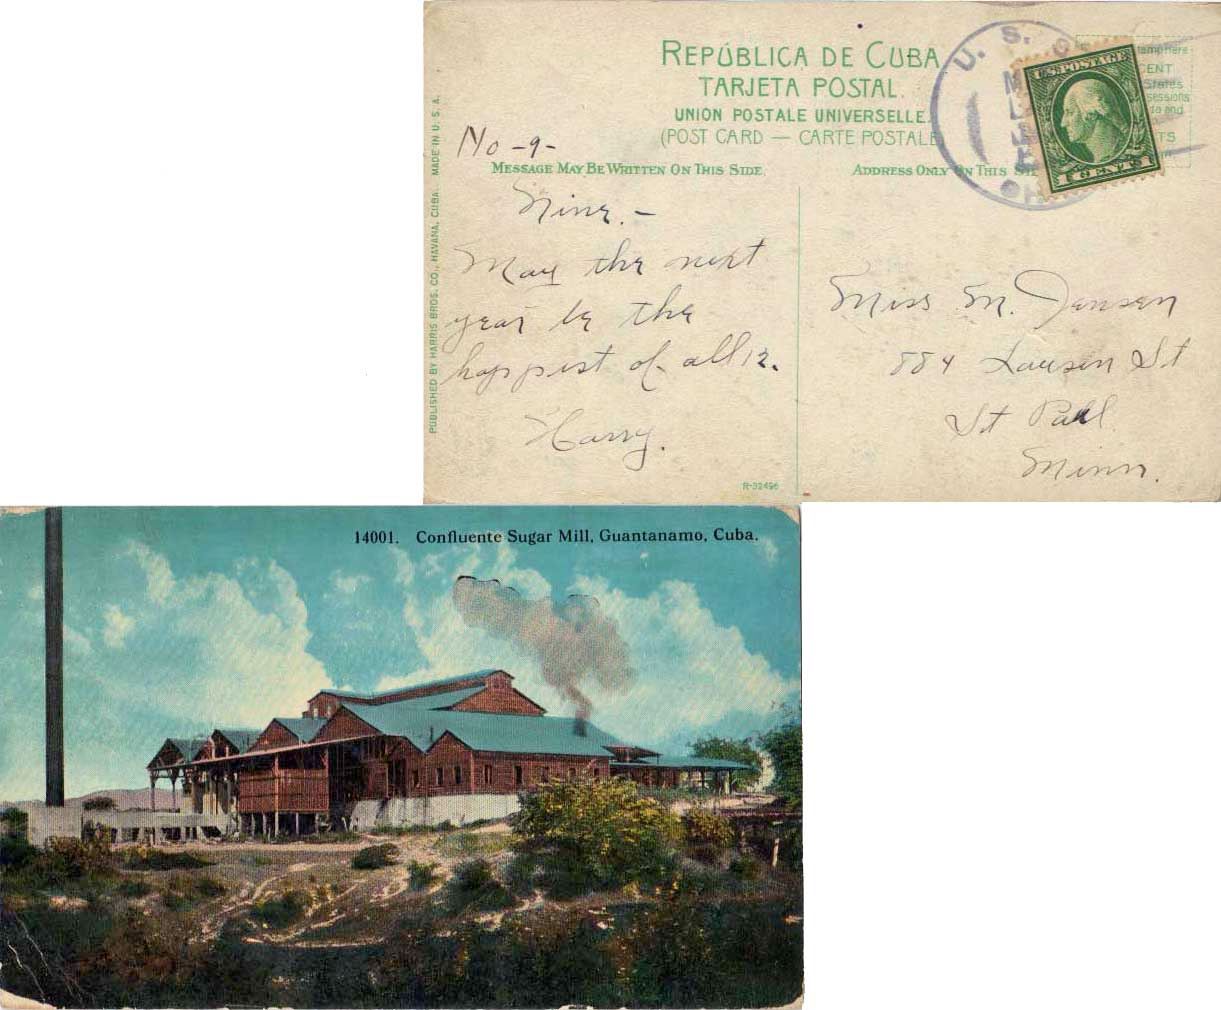 REPÚBLICA DE CUBA
TARJETA POSTAL.
UNION POSTALE UNIVERSELLE.
(POST CARD — CARTE POSTALE)
No -9-
MESSAGE MAY BE WRITTEN ON THIS SIDE.
ADDRESS ONLY ON THIS SI
U. S.
OHI
U.S. POSTAGE
1 CENT 1
tamp here
ENT
States
sessions
to and
TS
PUBLISHED BY HARRIS BROS. CO., HAVANA, CUBA. MADE IN U. S. A.
Nine. -
May the next
year be the
happiest of all 12.
Harry.
Miss M. Jensen
884 Lawson St
St Paul
Minn.
R-32496
14001. Confluente Sugar Mill, Guantanamo, Cuba.